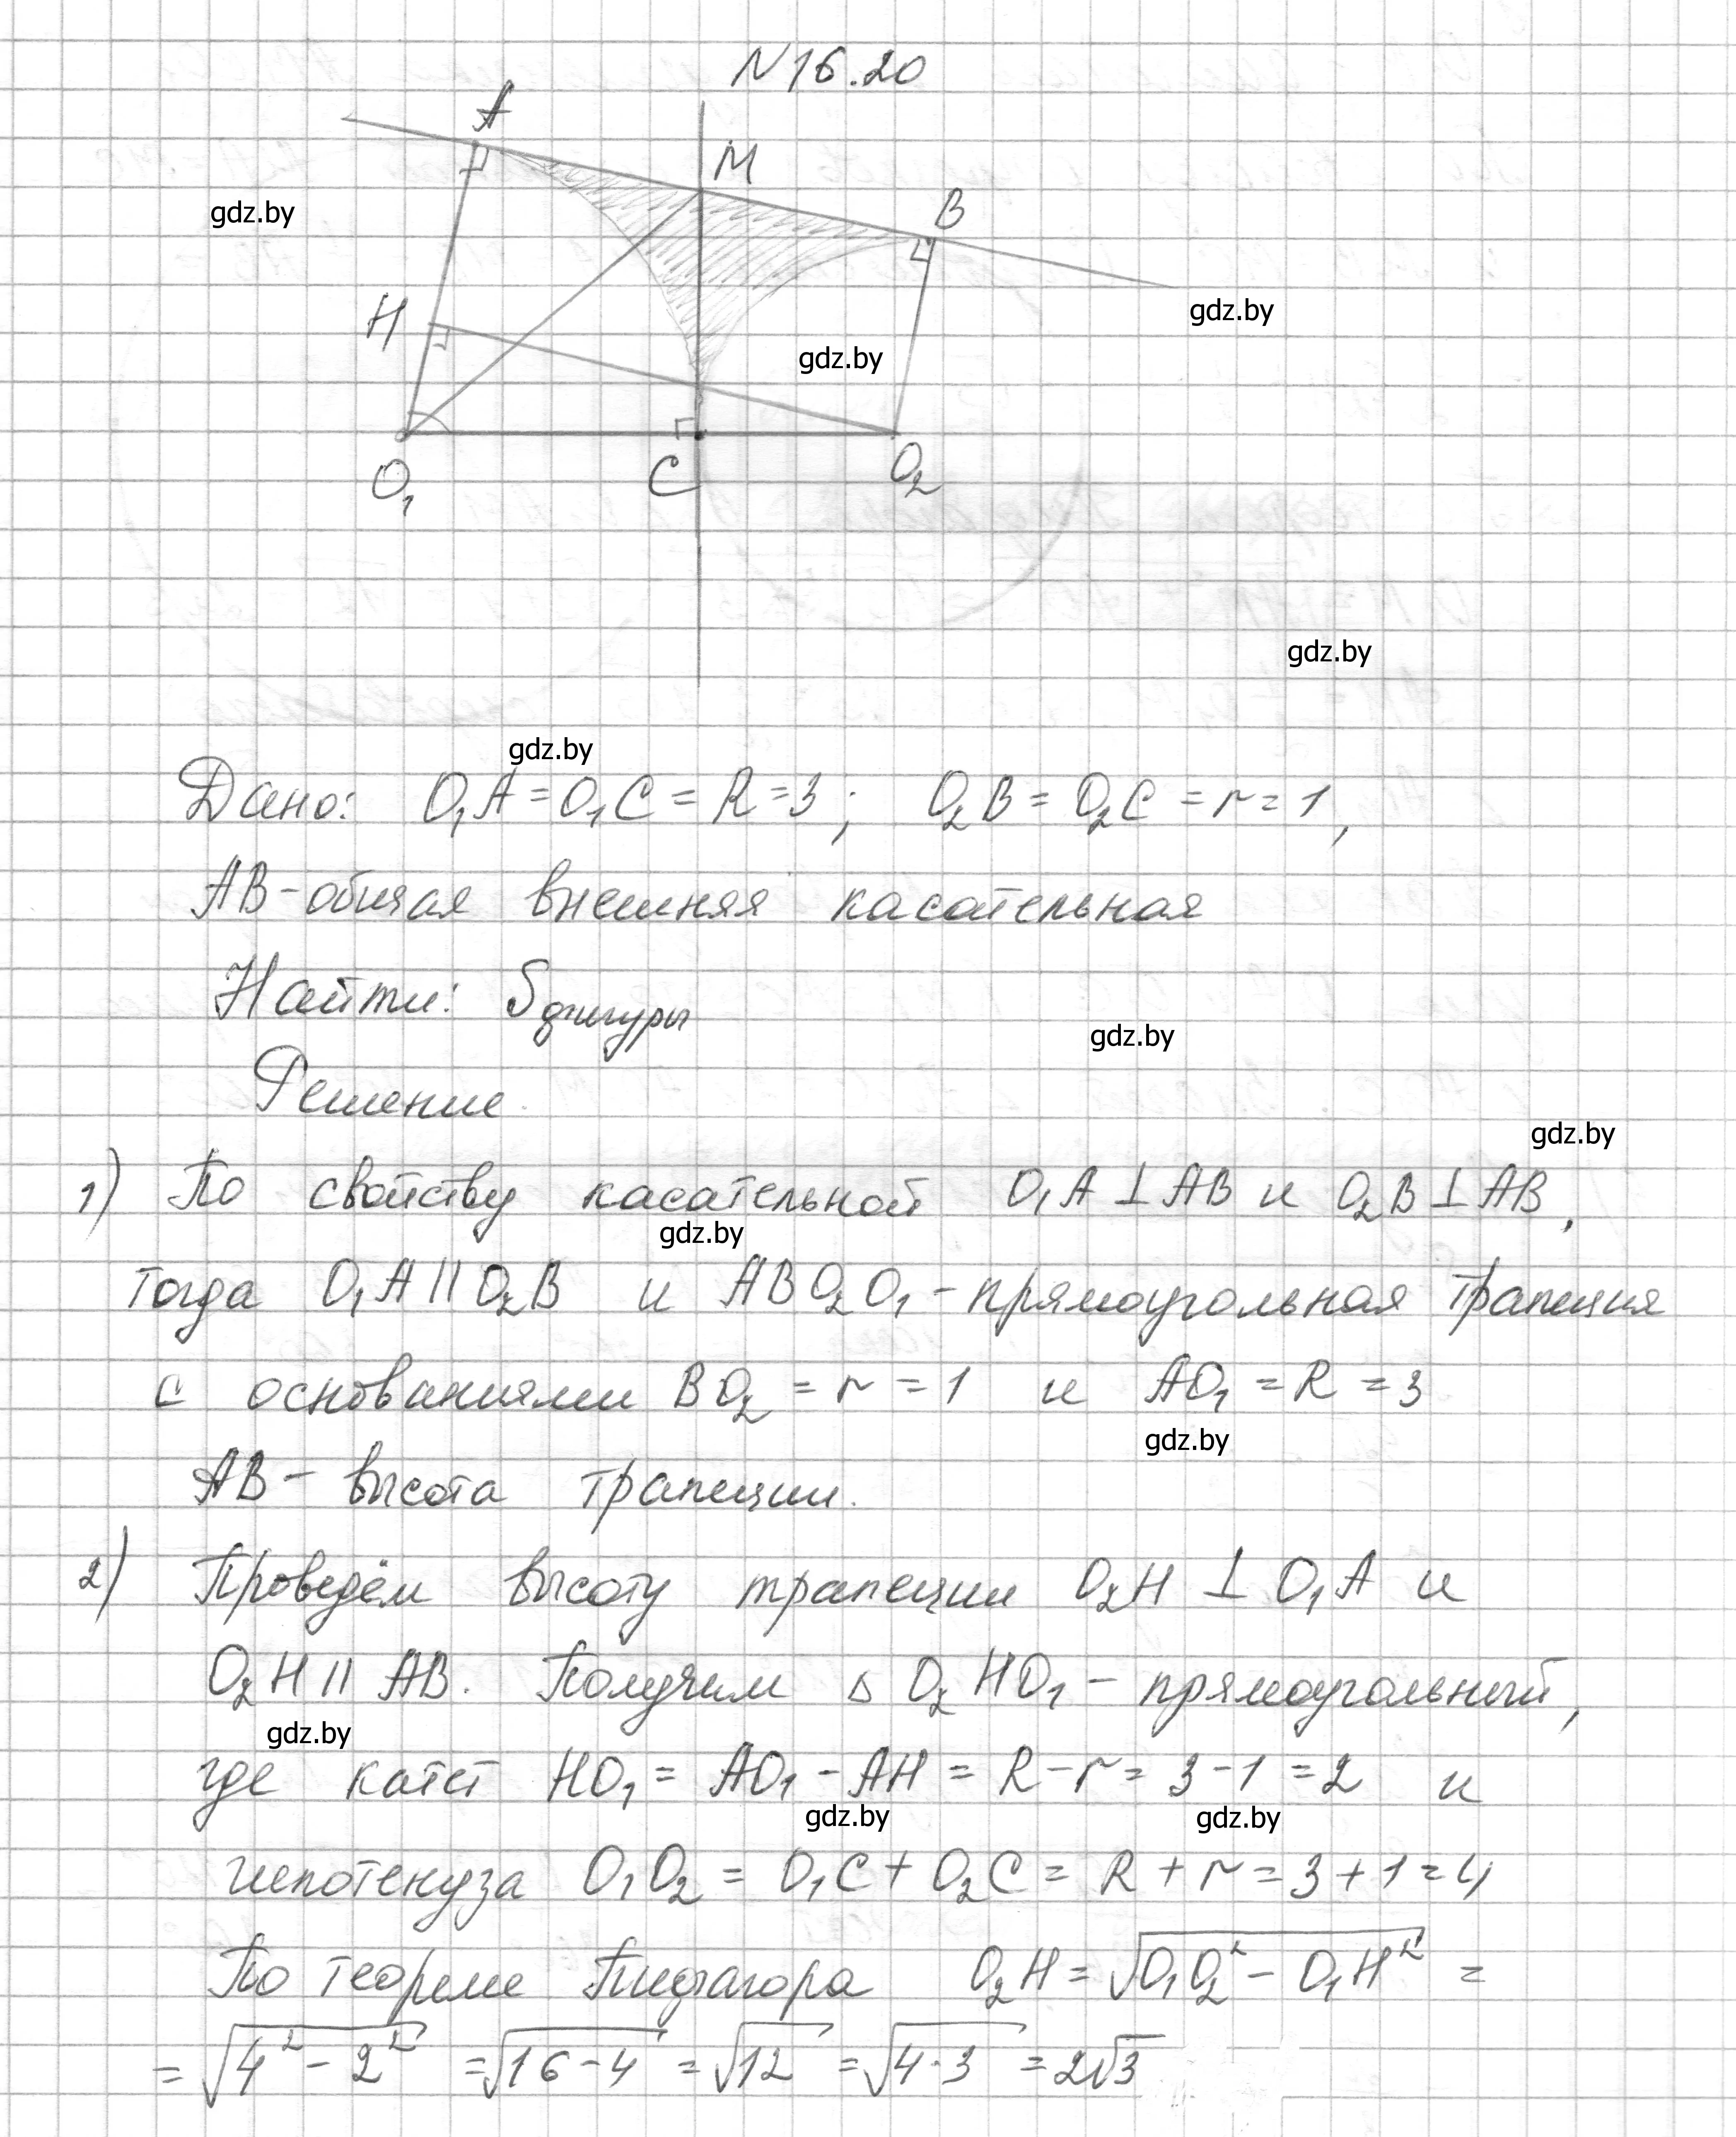 N 16.20
A
M
B
gdz.by
H
gdz.by
gdz.by
O₁ C O₂
gdz.by
gdz.by
Дано: O₁A = O₁C = R = 3; O₂B = O₂C = r = 1,
AB - общая внешняя касательная
Найти: Sфигуры
gdz.by
Решение
gdz.by
1) По свойству касательной O₁A ⊥ AB и O₂B ⊥ AB,
gdz.by
тогда O₁A || O₂B и ABO₂O₁ - прямоугольная трапеция
с основаниями BO₂ = r = 1 и AO₁ = R = 3
gdz.by
AB - высота трапеции.
2) Проведём высоту трапеции O₂H ⊥ O₁A и
O₂H || AB. Получим △ O₂HO₁ - прямоугольный,
gdz.by
где катет HO₁ = AO₁ - AH = R - r = 3 - 1 = 2 и
gdz.by gdz.by
гипотенуза O₁O₂ = O₁C + O₂C = R + r = 3 + 1 = 4
По теореме Пифагора O₂H = √(O₁O₂² - O₁H²) =
= √(4² - 2²) = √(16 - 4) = √12 = √(4·3) = 2√3